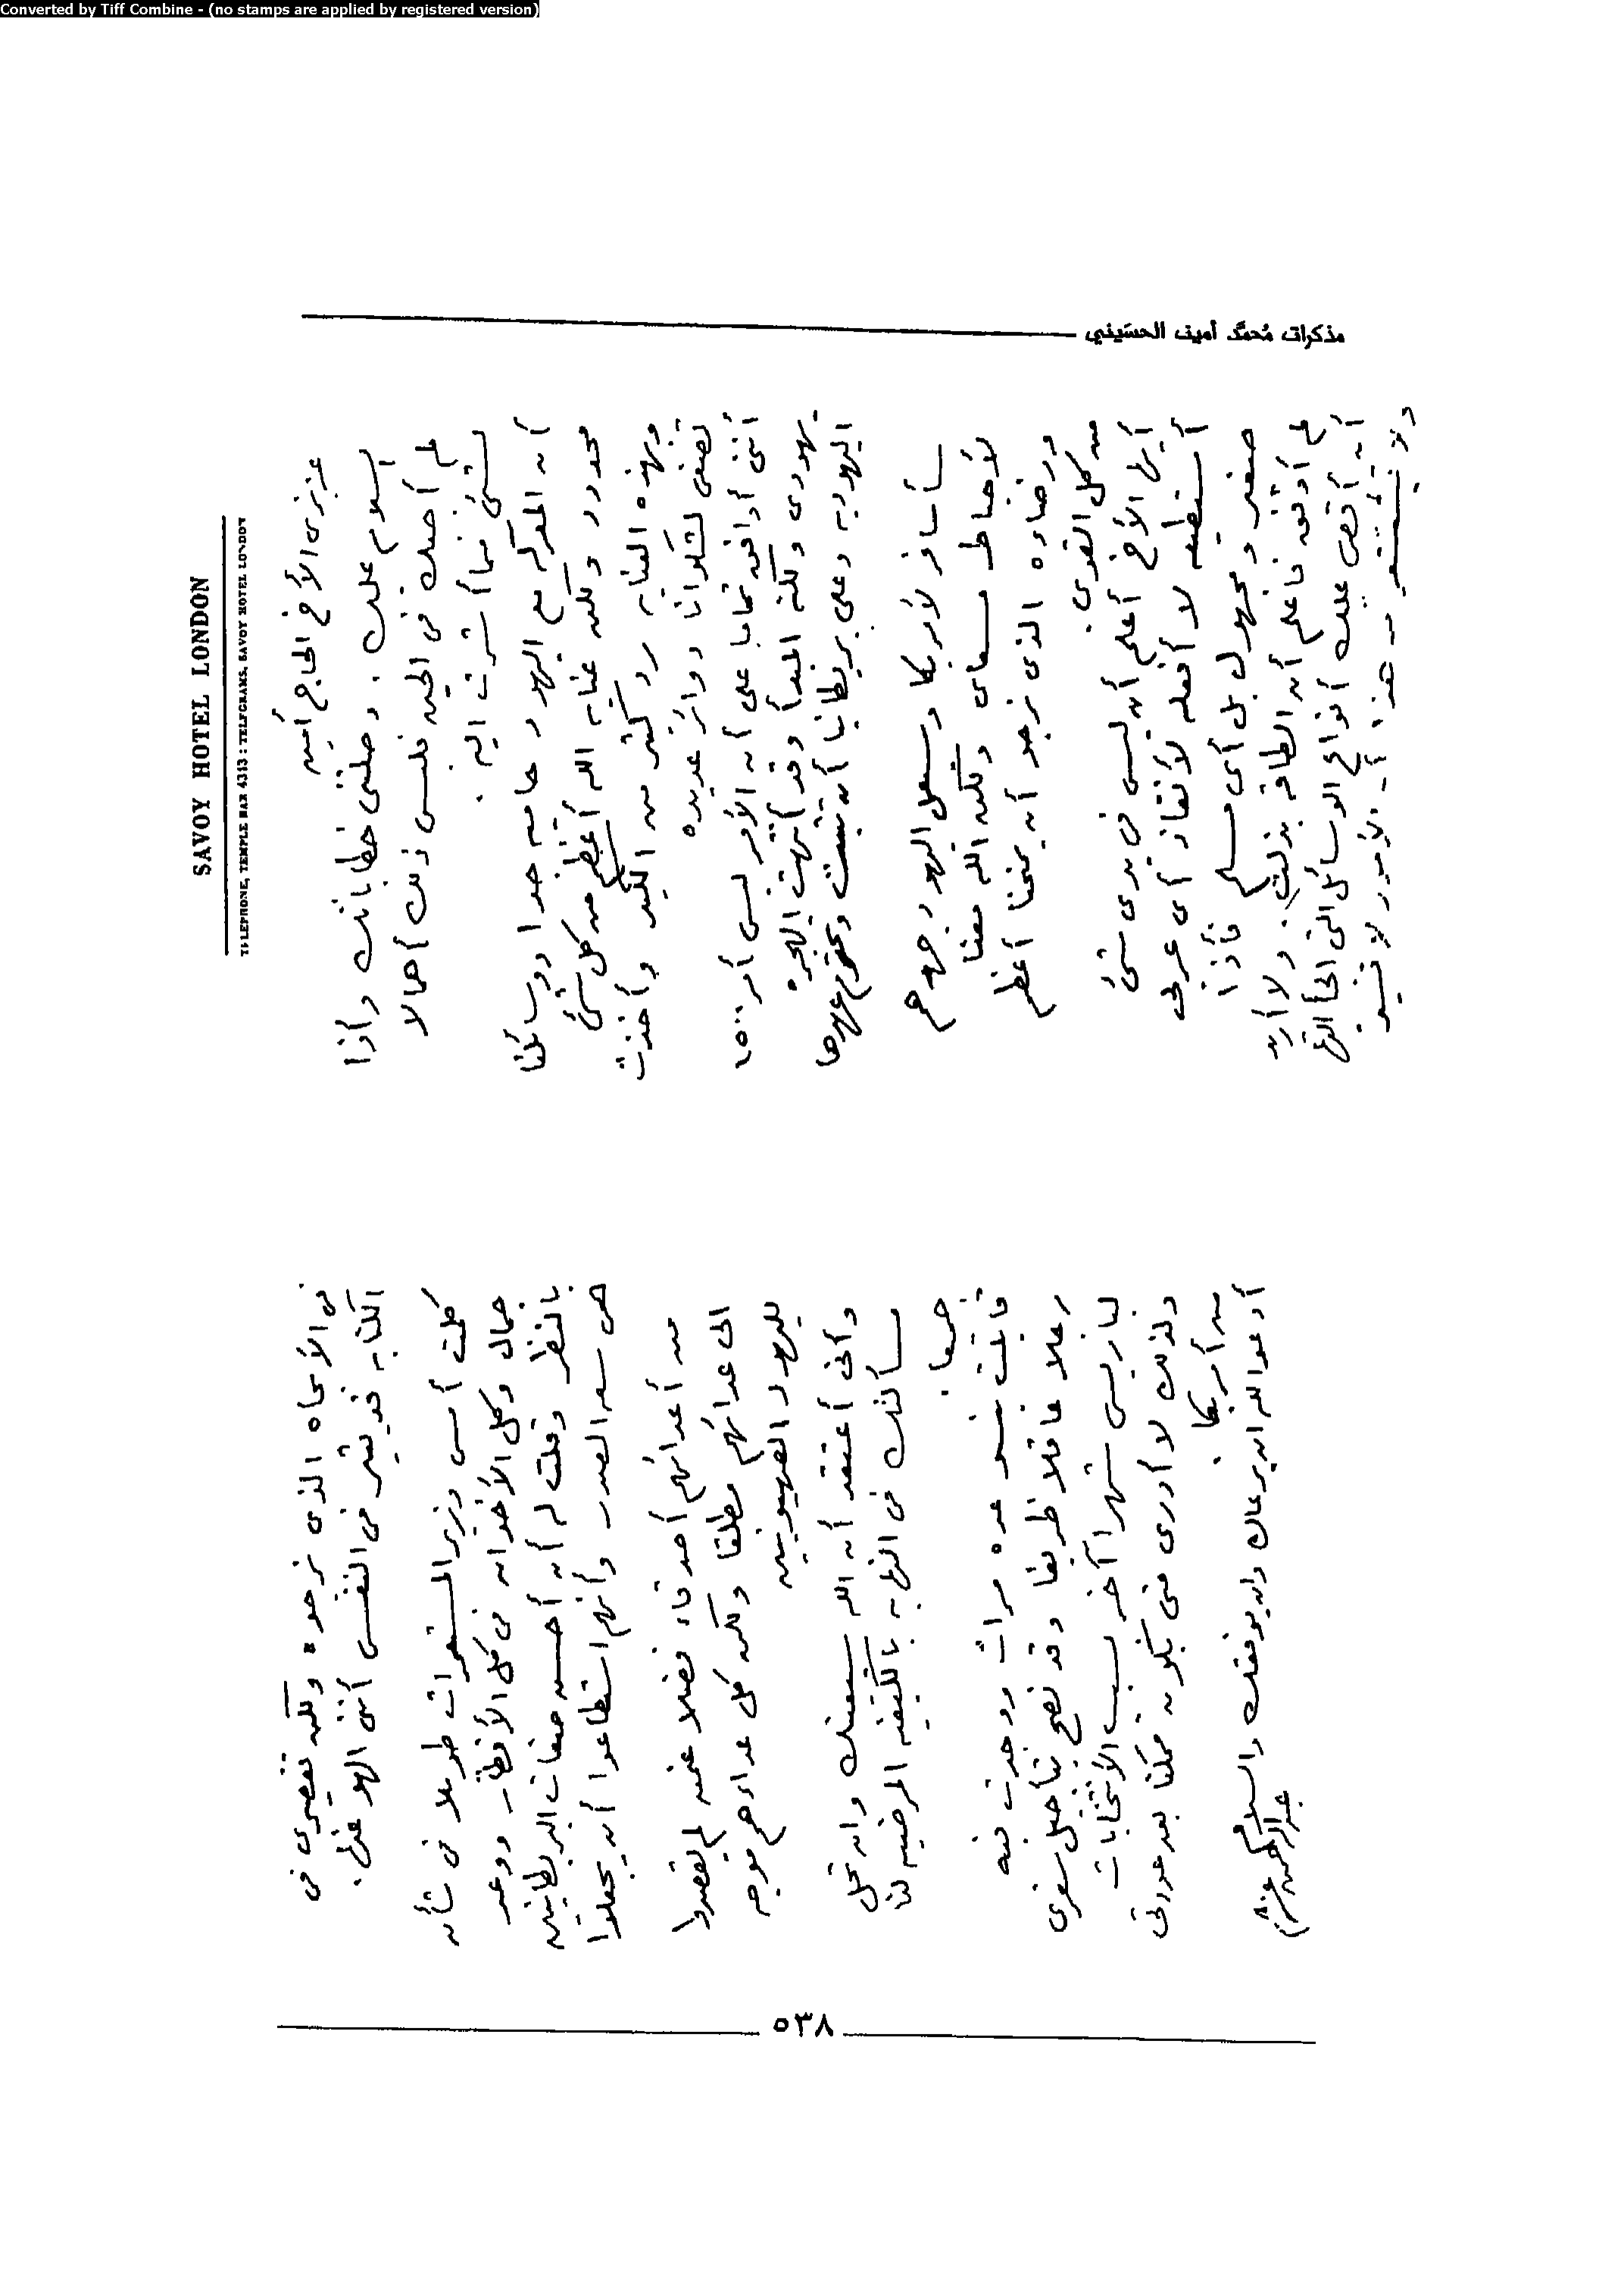 Converted by Tiff Combine - (no stamps are applied by registered version)
مذكرات مُحمَّد أمين الحسَيني
SAVOY HOTEL LONDON
TELEPHONE, TEMPLE BAR 4313 : TELEGRAMS, SAVOY HOTEL LONDON
عزيزى الأخ الحاج أمين
السلام عليك . وصلتنى خطاباتك وأذا
لم أجبك فى الحين فليس ذلك أهمالا
لشئ مما أشرت اليه .
أن المعركه مع اليهود حاميه جدا ووسائلنا
محدوده ولكن عنايه الله أعظم من كل شئ
وبهذه العنايه رد كثير من الكيد وأخذت
تصغى لشكوانا دوائر عديده
أننى أوافق تماما على أن الأمر ليس أمر ١٥٠٠
يهودى ولكنه المبدأ وقد أنتهت الهجره
اليهوديه وعلى بريطانيا أن تثبت وتحترم عهدها
سأسافر لأمريكا وسيعمل اليهود جهدهم
لأحباط مسعاى ولكن الله معنا
ورضاءه الذى نرجو أن يمنحنا أعظم
من كل القوى .
أيها الأخ أعلم أن ليس فى يدى شئ
أستطيعه لا أفعله لأنقاذ أى عربى
صغير ومجهول بل أى مسلم فأذا
لم أوفق فاعلم أن الطاقه بذلت . ولا أريد
أن أقص عليك أنواع الوسائل التى ألجأ اليها
فى الأتجاه الذى نرجوه ولكن تقصيرى فى
الكتابه قد يثير فى النفس أننى الهو عنها .
كلمت أمس وزير المستعمرات طويلا فى شأن
جمال وكل الأخوان فى كل الأقطار ووعد
بالنظر وقلت له أن أحسن صفات البريطانيين
هى سعه الصدر وأنهم استطاعوا أن يجعلوا
من أعدائهم أصدقاء فضلا عمن لم يقصدوا
الى عدائهم مطلقا ولكن كل عداءهم موجه
لليهود الصهيونيين
وأنى أعتقد أن الله سيعينك وان تحل
مسألتك فى النهايه بالكيفيه المرضيه لنا
جميعا .
قابلت عده مرات ووجدت فيه
رجلا عاقلا ظريفا وقد نصح بتأجيل سفرى
لباريس شهرا آخر لسبب الأنتخابات
ولذلك لا أدرى متى يكون ممكنا بعد عودتى
من أمريكا .
أدعو الله ان يرعاك وان يوفقك والسلام
عبد الرحمن عزام
٥٣٨